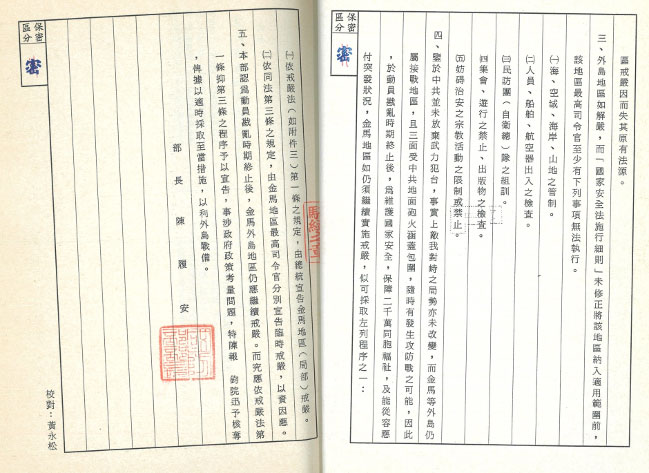 保密區分
密
區戒嚴因而失其原有法源。
三、外島地區如解嚴，而「國家安全法施行細則」未修正將該地區納入適用範圍前，
該地區最高司令官至少有下列事項無法執行。
㈠海、空域、海岸、山地之管制。
㈡人員、船舶、航空器出入之檢查。
㈢民防團（自衛總）隊之組訓。
㈣集會、遊行之禁止、出版物之檢查。
㈤妨碍治安之宗教活動之限制或禁止。
四、鑒於中共並未放棄武力犯台，事實上敵我對峙之局勢亦未改變，而金馬等外島仍
屬接戰地區，且三面受中共地面砲火涵蓋包圍，隨時有發生攻防戰之可能，因此
，於動員戡亂時期終止後，為維護國家安全，保障二千萬同胞福祉，及能從容應
付突發狀況，金馬地區如仍須繼續實施戒嚴，似可採取左列程序之一：
保密區分
密
㈠依戒嚴法（如附件三）第一條之規定，由總統宣告金馬地區（局部）戒嚴。
㈡依同法第三條之規定，由金馬地區最高司令官分別宣告臨時戒嚴，以資因應。
五、本部認為動員戡亂時期終止後，金馬外島地區仍應繼續戒嚴。而究應依戒嚴法第
一條抑第三條之程序予以宣告，事涉政府政策考量問題，特陳報　鈞院迅予核奪
，俾據以適時採取至當措施，以利外島戰備。
部長陳履安
校對：黃永松